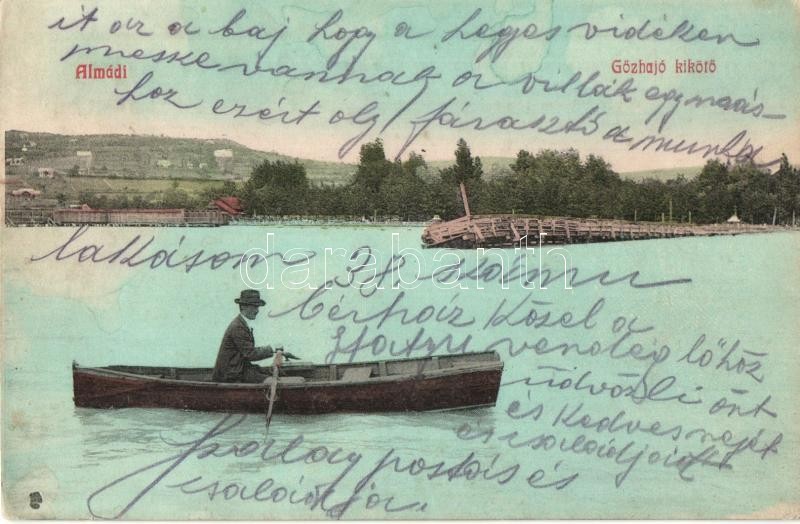 it az a baj hogy a hegyes vidéken
messze vannak a villák egymás-
hoz ezért oly fárasztó a munka
Almádi
Gőzhajó kikötő
lakásom 38 számu
bérház közel a
vendéglőhöz
üdvözli önt
és kedves nejét
és családját
postás és
családja.
darabanth